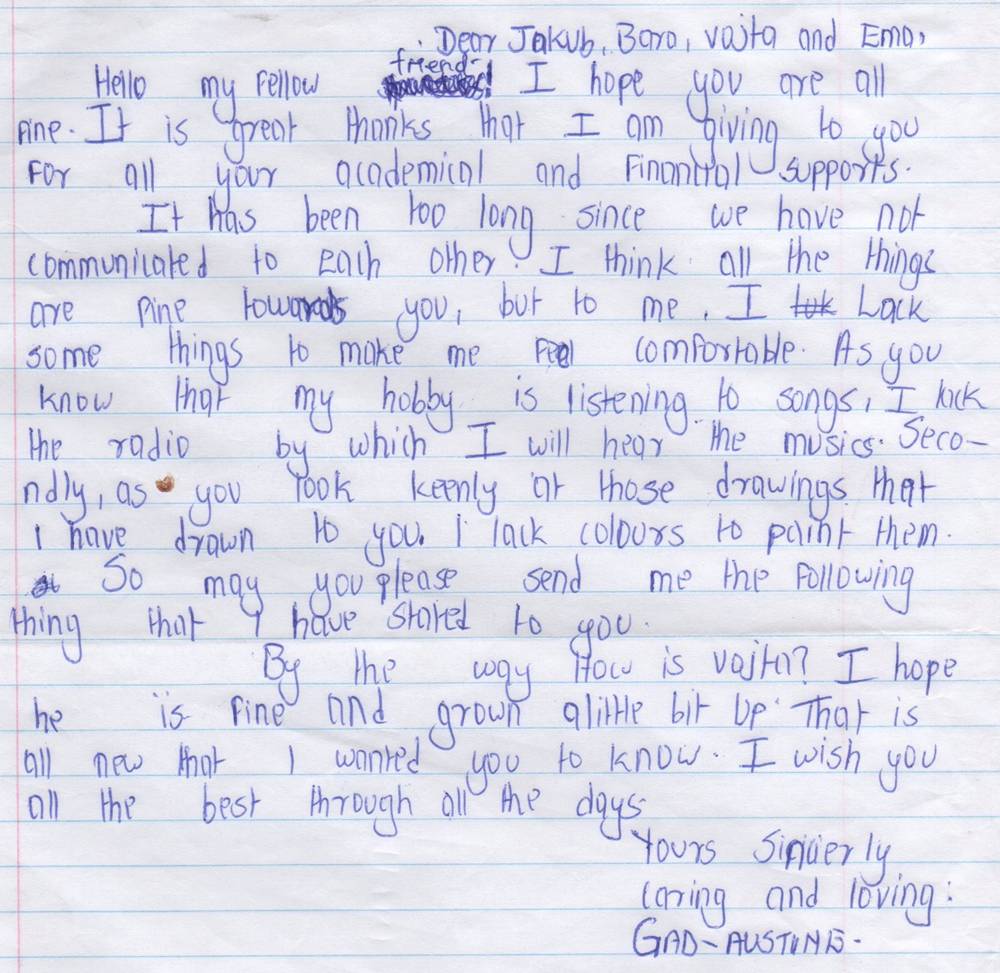 Dear Jakub, Bara, vajta and Ema,
Hello my Fellow friend! I hope you are all
fine. It is great thanks that I am giving to you
For all your academical and Financial supports.
It has been too long since we have not
communicated to each other. I think all the things
are fine towards you, but to me, I Lack
some things to make me feel comfortable. As you
know that my hobby is listening to songs, I lack
the radio by which I will hear the musics. Seco-
ndly, as you look keenly at those drawings that
i have drawn to you. i lack colours to paint them.
So may you please send me the Following
thing that I have stated to you.
By the way How is vajta? I hope
he is fine and grown alittle bit up. That is
all new that I wanted you to know. I wish you
all the best through all the days.
Yours Sincierly
caring and loving:
GAD-AUSTINE.